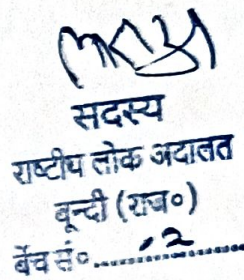 सदस्य
राष्टीय लोक अदालत
बून्दी (राज०)
बेंच सं०......2............